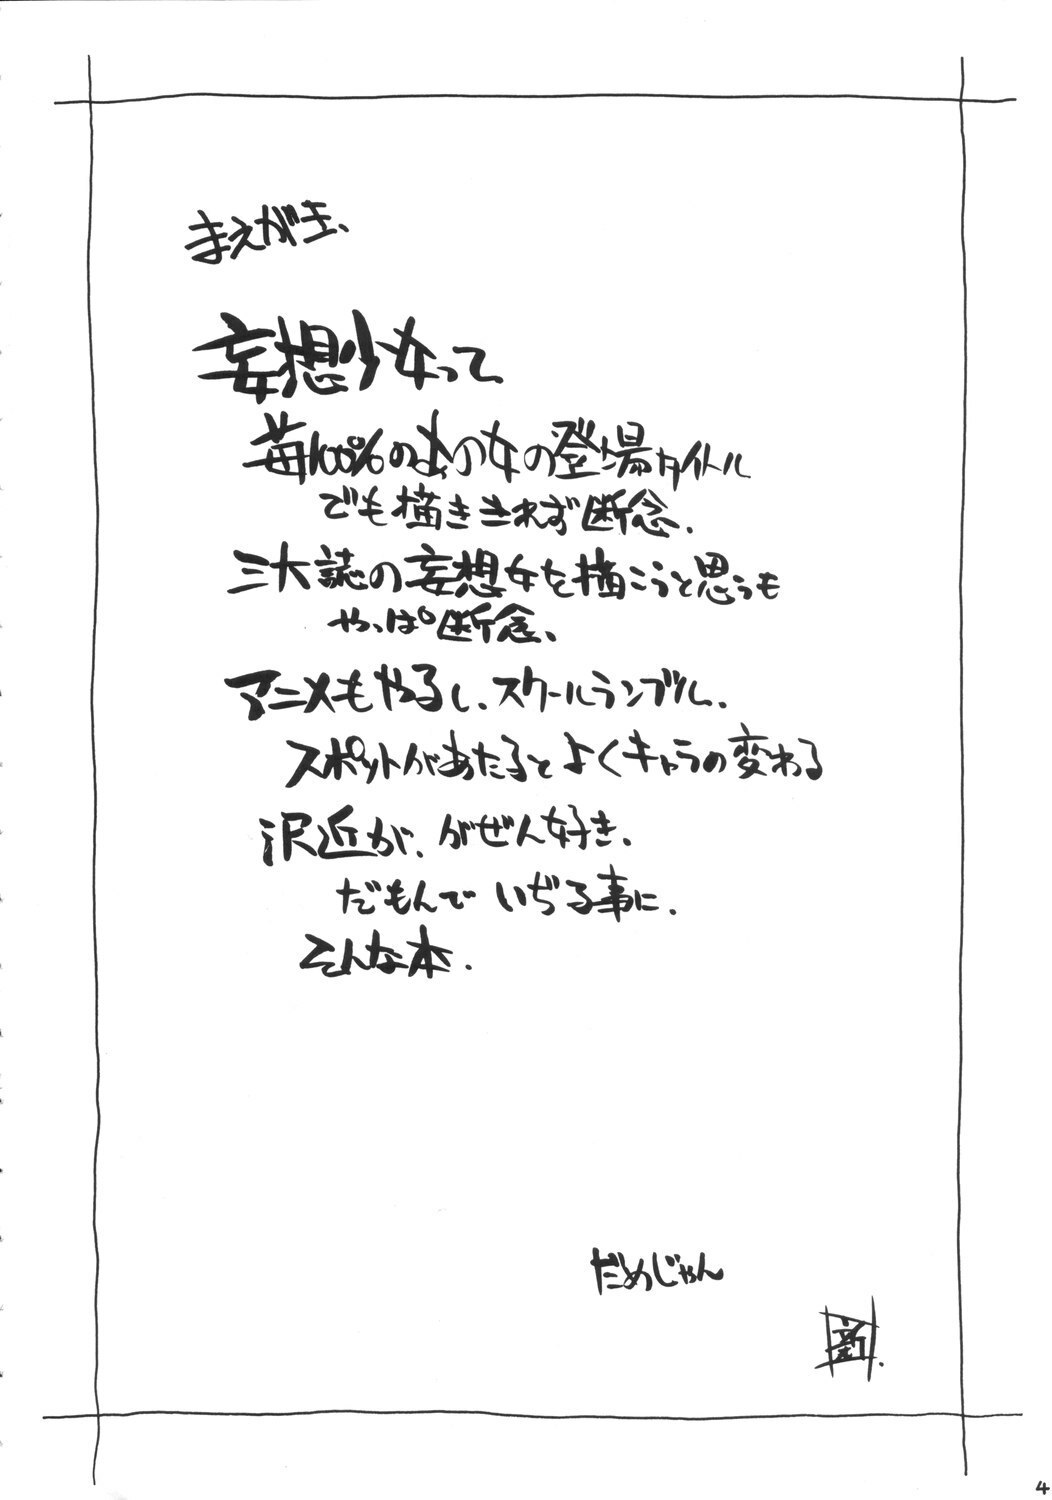 まえがき、
妄想少女って、
苺100%のあの女の登場タイトル
でも描ききれず断念.
三大誌の妄想女を描こうと思うも
やっぱ断念、
アニメもやるし、スクールランブル.
スポットがあたるとよくキャラの変わる
沢近が、がぜん好き.
だもんでいぢる事に.
そんな本.
だめじゃん
新.
4